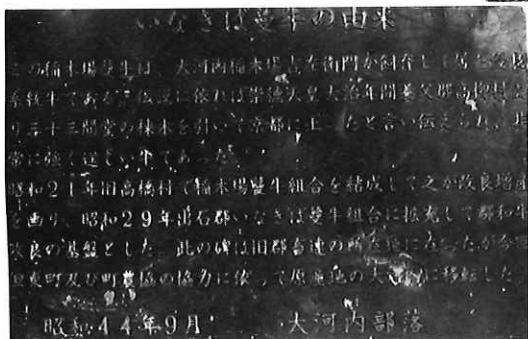 いなきば蔓牛の由来
この稲木場蔓牛は、大河内稲木場吉左衛門が飼育して居た
系統牛である。伝説に依れば崇徳天皇大治年間養父郡高柳村よ
り三十三間堂の棟木を引いて京都に上ったと言い伝えられ、
常に強く逞しい牛であった。
昭和21年旧高橋村で稲木場蔓牛組合を結成して之が改良増殖
を画り、昭和29年出石郡いなきば蔓牛組合に拡充して郡和牛
改良の基盤とした。此の碑は旧郡畜連の所在地に
但東町及び町農協の協力に依って原産地の大河内に移転した
昭和44年9月 大河内部落